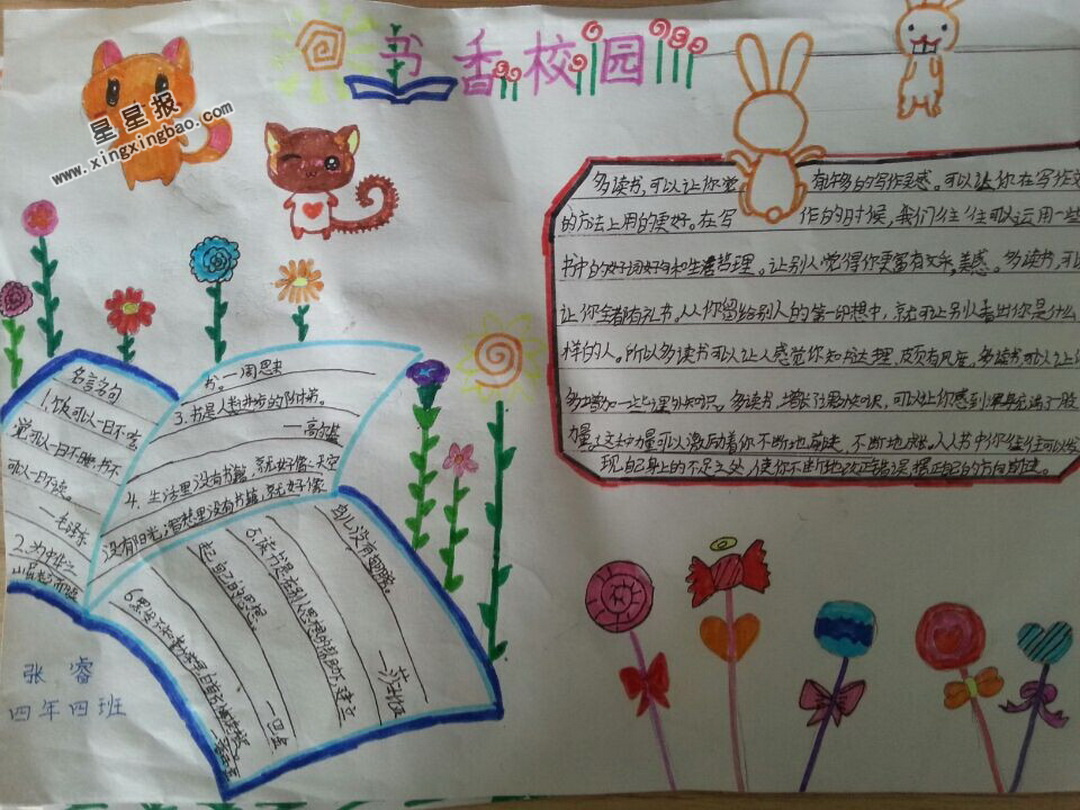 书香校园
星星报
www.xingxingbao.com
多读书,可以让你觉 有许多的写作灵感。可以让你在写作文
的方法上用的更好。在写 作的时候,我们往往可以运用一些
书中的好词好句和生活哲理。让别人觉得你更富有文采,美感。多读书,可以
让你全都有礼书。从你留给别人的第一印想中,就可让别人看出你是什么
样的人。所以多读书可以让人感觉你知书达理,颇有风度。多读书,可以让你
多增加一些课外知识。多读书,增长了课外知识,可以让你感到浑身充满了一股
力量。这种力量可以激励着你不断地前进,不断地成长。从书中你往往可以发
现自己身上的不足之处,使你不断地改正错误,摆正自己的方向前进。
名言名句
1.饭可以一日不吃
觉可以一日不睡,书不
可以一日不读。
—毛泽东
2.为中华之
崛起而读
书。—周恩来
3.书是人类进步的阶梯。
—高尔基
4.生活里没有书籍,就好像天空
没有阳光;智慧里没有书籍,就好像
鸟儿没有翅膀。
—莎士比亚
5.读书是在别人思想的帮助下,建立
起自己的思想。
6.黑发不知勤学早,白首方悔读书迟。
张 睿
四年四班